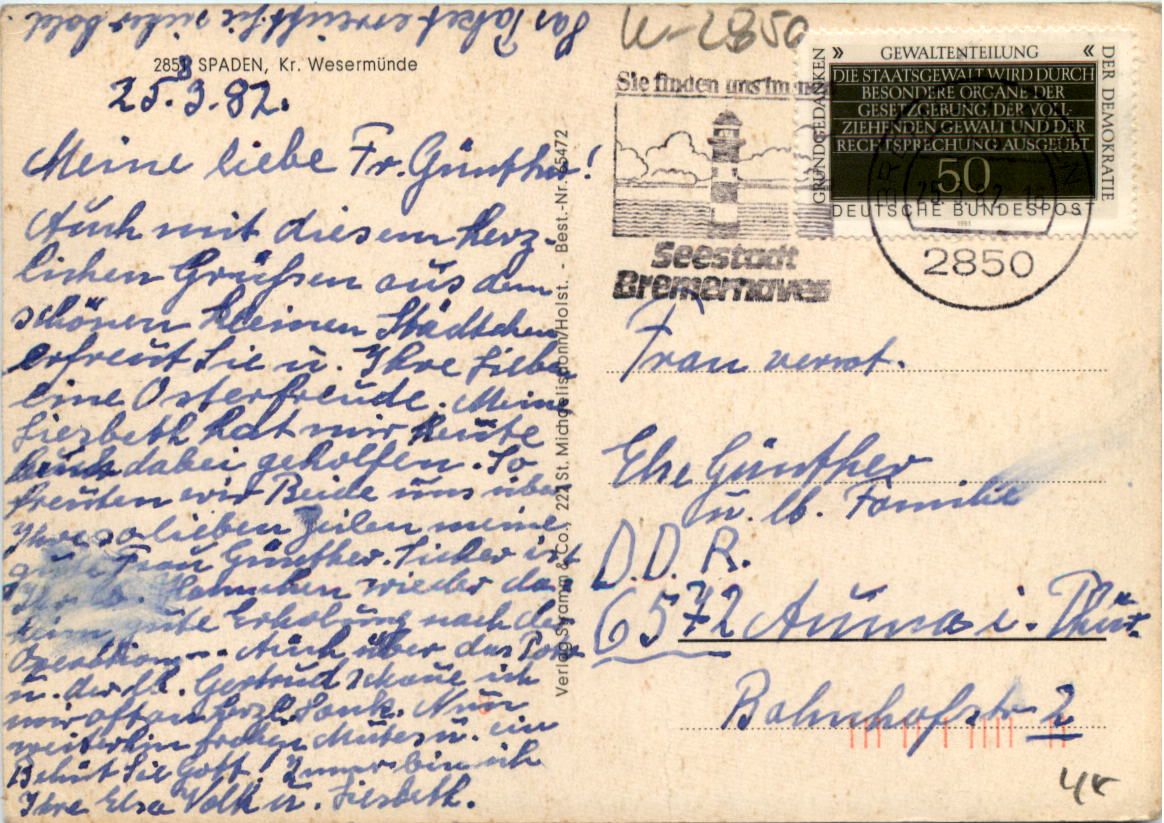 Das Paket erreicht Sie sicher bald
2851 SPADEN, Kr. Wesermünde
25.3.82.
Meine liebe Fr. Günther!
Auch mit diesem herz-
lichen Grüßen aus dem
schönen kleinen Städtchen
erfreut Sie u. Ihre Lieben
eine Osterfreude. Meine
Liesbeth hat mir heute
dabei geholfen. So
freuten wir Beide uns über
Ihre so lieben Zeilen meine
gute Frau Günther. Sicher ist
Ihr lb. Hannchen wieder da
gute Erholung nach der
Operation --- Auch über das
u. der Gertrud schaue ich
mir oft an herzl. Dank. Nun
weiterhin frohen Mutes u. ein
Behüt Sie Gott! Immer bin ich
Ihre Elsa Volk u. Liesbeth.
Verlag Schramm & Co., 222 St. Michaelisdonn/Holst. - Best.-Nr. 65472
W-2850
Sie finden uns im
Seestadt
Bremerhaven
GEWALTENTEILUNG
GRUNDGEDANKEN » « DER DEMOKRATIE
DIE STAATSGEWALT WIRD DURCH
BESONDERE ORGANE DER
GESETZGEBUNG, DER VOLL-
ZIEHENDEN GEWALT UND DER
RECHTSPRECHUNG AUSGEÜBT
50
DEUTSCHE BUNDESPOST
1981
2850
Frau verwt.
Else Günther
u. lb. Familie
D.D.R.
6572 Auma i. Thür.
Bahnhofstr 2